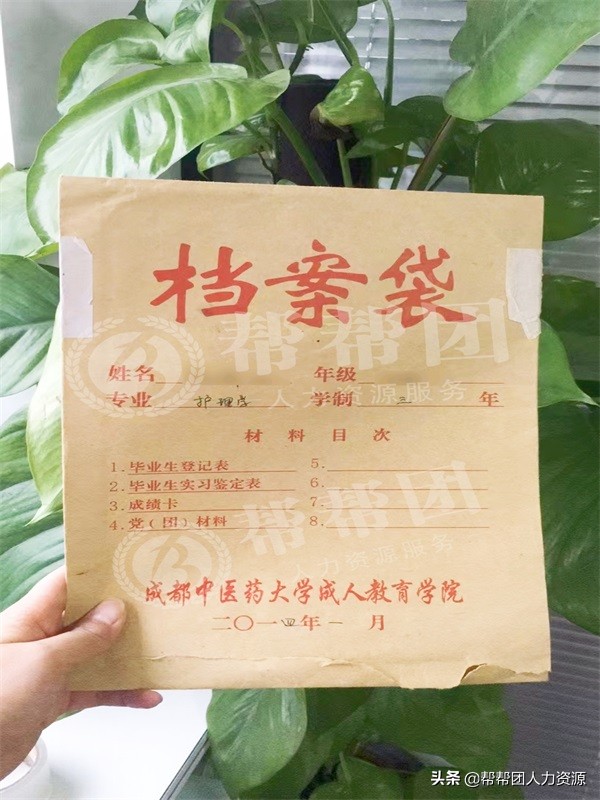 档案袋
姓名 年级
专业 护理学 学制 三 年
材料目次
1.毕业生登记表 5.
2.毕业生实习鉴定表 6.
3.成绩卡 7.
4.党(团)材料 8.
成都中医药大学成人教育学院
二〇一四年一月
帮帮团
人力资源服务
帮帮团
人力资源服务
头条 @帮帮团人力资源